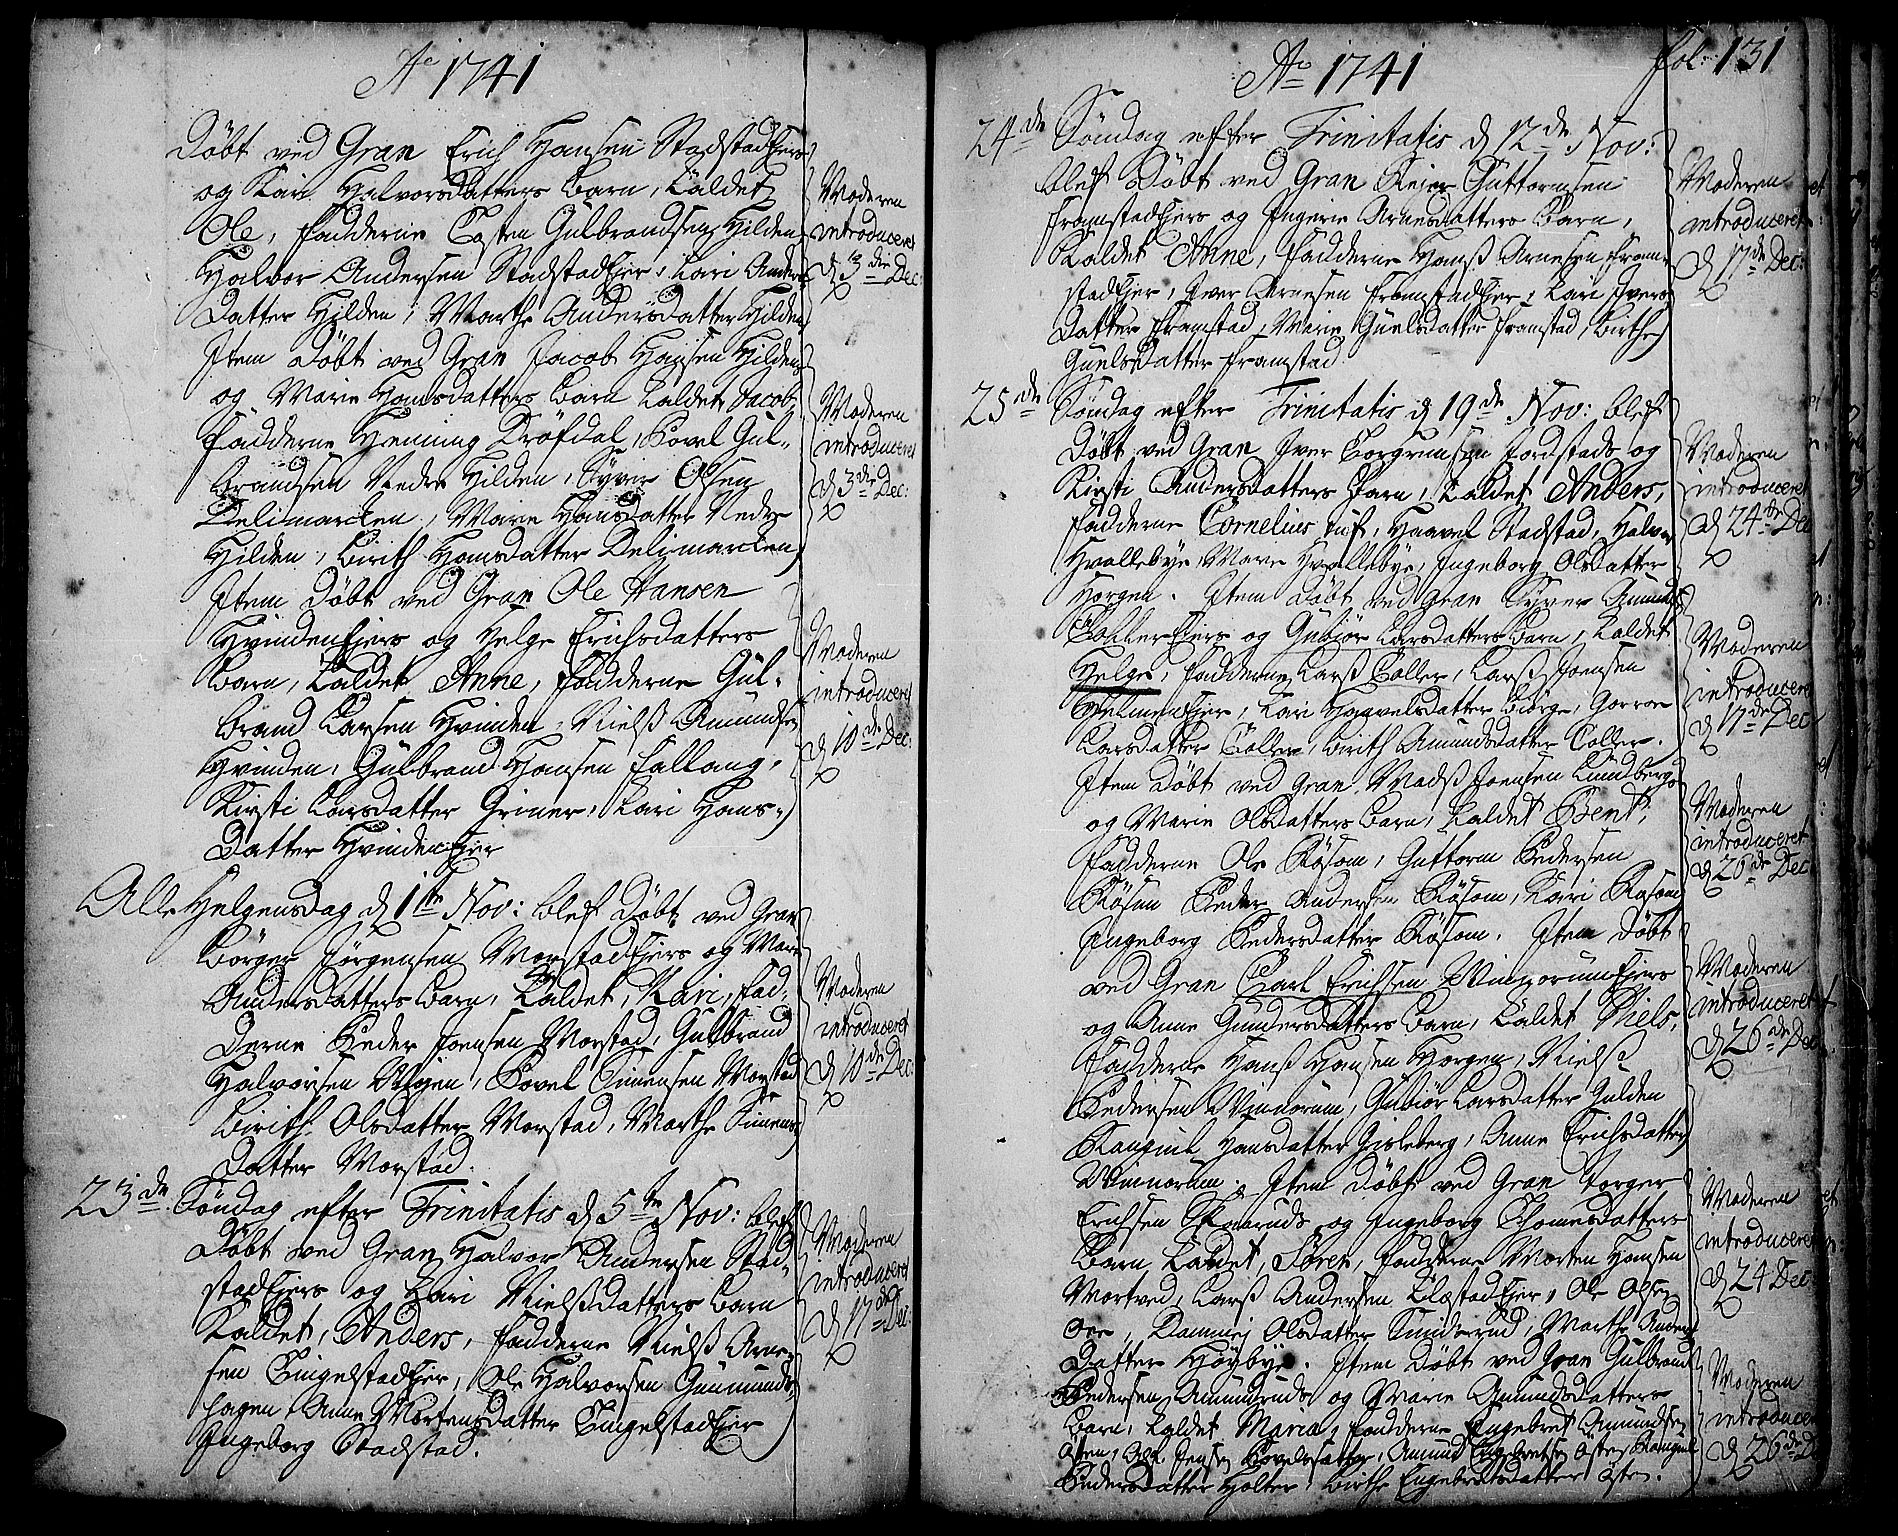 Ao 1741
Døbt ved Gran Erich Hansen Stadstadejers
og Kari Halvorsdatters Barn, kaldet
Ole, Fadderne Tosten Gulbrandsen Hilden
Halvor Andersen Stadstadejer, Kari Anders
Datter Hilden, Marthe Andersdatter Hilden
Item Døbt ved Gran Jacob Hansen Hilden
og Marie Hansdatters Barn kaldet Jacob
Fadderne Henning Drøfdal, Povel Gul-
brandsen Nedre Hilden, Syver Olsen
Delimarcken, Marie Hansdatter Nedre
Hilden, Birith Hansdatter Delimarcken
Item Døbt ved Gran Ole Hansen
Hvindenejers og Helge Erichsdatters
Barn, kaldet Anne, Fadderne Gul-
brand Larsen Hvinden, Nielß Amundsen
Hvinden, Gulbrand Hansen Fallang,
Kirsti Larsdatter Griner, Kari Hans-
Datter Hvindenejer
Alle Helgensdag d 1te Nov: blef Døbt ved Gran
Børger Jørgensen Morstadejers og Mari
Andersdatters Barn, kaldet, Kari, Fad-
derne Peder Joensen Morstad, Gulbrand
Halvorsen Vigen, Povel Simensen Morstad
Birith Olsdatter Morstad, Marthe Simens
Datter Morstad.
23de Søndag efter Trinitatis d 5te Nov: blef
Døbt ved Gran Halvor Andersen Stad-
stadejers og Kari Nielßdatters Barn
kaldet, Anders, Fadderne Nielß Arne-
sen Tingelstadejer, Ole Halvorsen Gunmunds
hagen, Anne Mortensdatter Tingelstadejer
Ingeborg Stadstad.
Moderen
introduceret
d 3die Dec:
Moderen
introduceret
d 3die Dec:
Moderen
introduceret
d 10de Dec:
Moderen
introduceret
d 10de Dec:
Moderen
introduceret
d 17de Dec:
Ao 1741
fol: 131
24de Søndag efter Trinitatis d 12de Nov:
blef Døbt ved Gran Reier Guttormsen
Framstadejers og Ingerie Arnesdatters Barn,
kaldet Anne, Fadderne Hanß Arnesen Fram-
stadejer, Iver Arnesen Framstadejer, Kari Ivers
Datter Framstad, Marie Guulsdatter Framstad, Birthe
Guulsdatter Framstad
25de Søndag efter Trinitatis d 19de Nov: blef
Døbt ved Gran Iver Torgrimsen Jordstads og
Kirsti Andersdatters Barn, kaldet Anders,
Fadderne Cornelius Tuf, Haavel Stadstad, Halvor
Hvallebye, Mari Hvallebye, Ingeborg Olsdatter
Horgen. Item Døbt ved Gran Syver Amunds
Collerejers og Gubiør Larsdatters Barn, kaldet
Helge, Fadderne Larß Coller, Larß Joensen
Helmenejer, Kari Haavelsdatter Biørge,
Larsdatter Coller, Birith Amundsdatter Coller.
Item Døbt ved Gran Madß Joensen Lundbergs
og Marie Olsdatters Barn, kaldet Bent,
Fadderne Ole Røsom, Guttorm Pedersen
Røsum Peder Andersen Røsom, Kari Røsom
Ingeborg Pedersdatter Røsom. Item Døbt
ved Gran Carl Erichsen Winnorumejers
og Anne Gundersdatters Barn, kaldet Niels,
Fadderne Hanß Hansen Horgen, Nielß
Pedersen Winnorum, Gubiør Larsdatter Gulden
Rangnil Hansdatter Gisleberg, Anne Erichsdatter
Winnorum. Item Døbt ved Gran Torger
Erichsen Skaaruds og Ingeborg Thomesdatters
Barn kaldet, Søren, Fadderne Morten Hansen
Mortved, Larß Andersen, Ole Olsen
Olsdatter, Marthe Anders
Datter Høybye. Item Døbt ved Gran Gulbrand
Pedersen Amundruds og Marie Amundsdatters
Barn, kaldet Maria, Fadderne Engebret Amundsen
Østen, Amund Engebretsen Østen, Rangnil
Pedersdatter Holter, Birthe Engebretsdatter Østen.
Moderen
introduceret
d 17de Dec:
Moderen
introduceret
d 24de Dec
Moderen
introduceret
d 17de Dec
Moderen
introduceret
d 26de Dec
Moderen
introduceret
d 26de Dec
Moderen
introduceret
d 24 Dec
Moderen
introducer
d 26de D